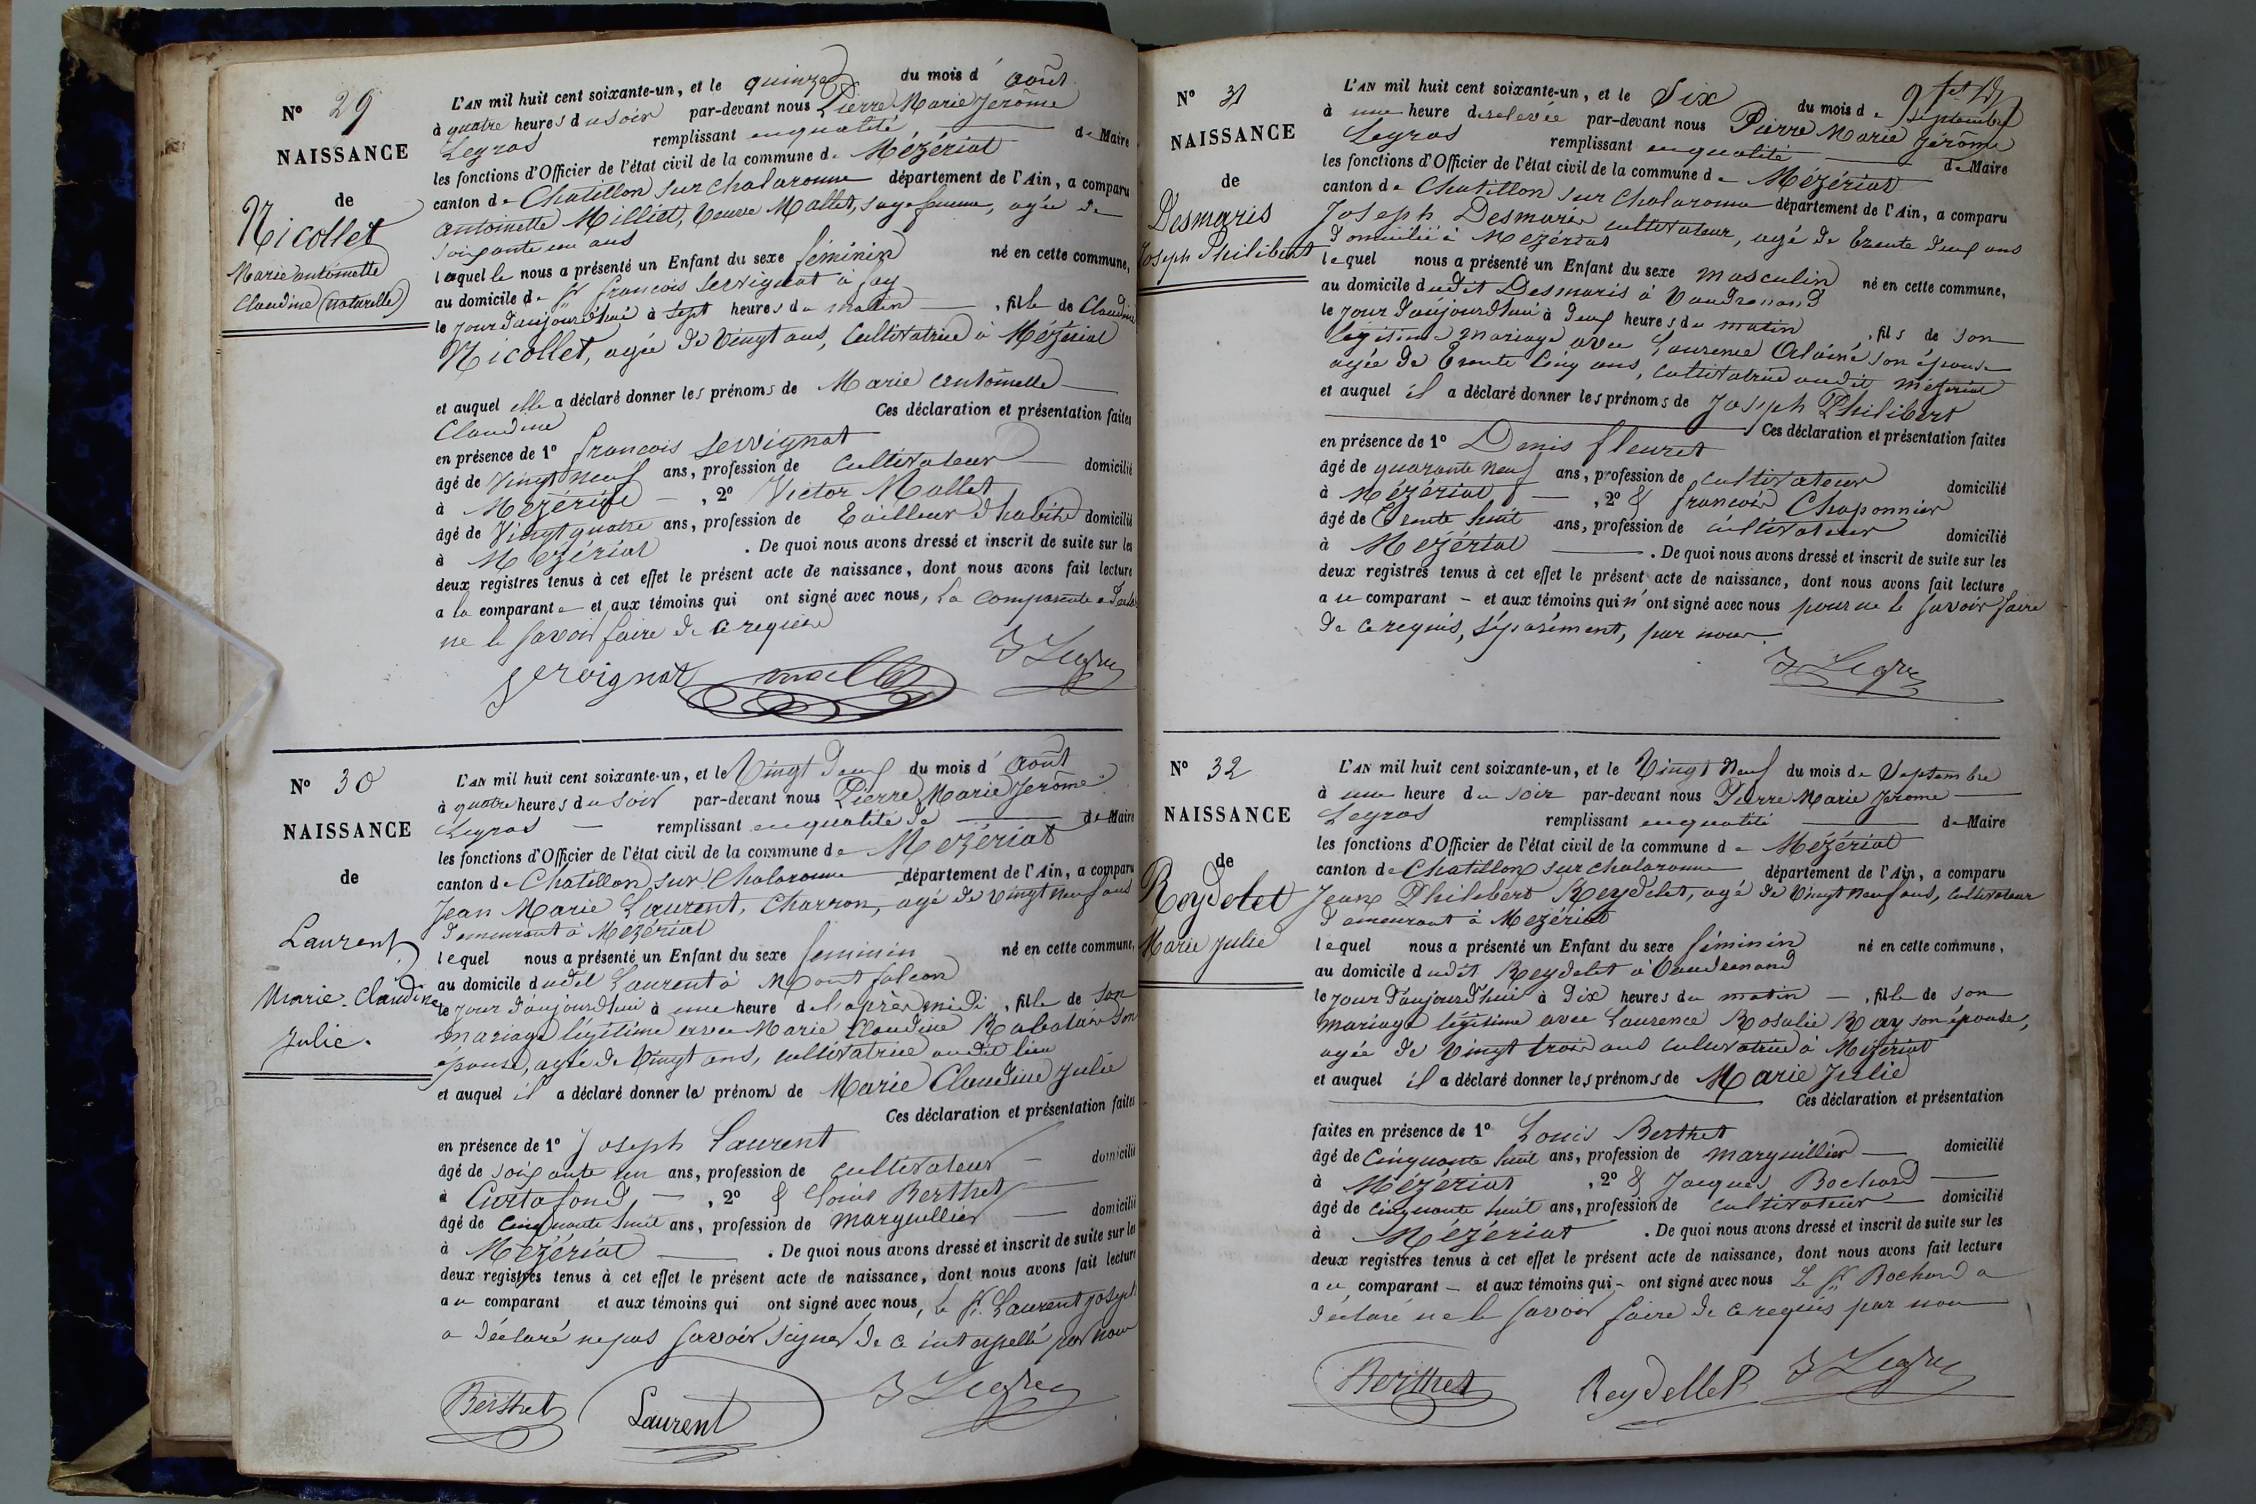 N° 29
NAISSANCE
de
Nicollet
Marie antoinette
Claudine (naturelle)
L'AN mil huit cent soixante-un, et le quinze du mois d' août
à quatre heures du soir par-devant nous Pierre Marie Jerôme
Legras remplissant en qualité de Maire
les fonctions d'Officier de l'état civil de la commune de Mézériat
canton de Chatillon sur chalaronne département de l'Ain, a comparu
antoinette Milliet, Veuve Mallet, sage femme, agée de
soixante un ans
laquelle nous a présenté un Enfant du sexe féminin né en cette commune,
au domicile de Sr francois Servignat à fay
le jour d'aujourd'hui à sept heures du matin , fille de Claudine
Nicollet, agée de Vingt ans, Cultivatrice à Mézériat
et auquel elle a déclaré donner les prénoms de Marie antoinette
Claudine Ces déclaration et présentation faites
en présence de 1° francois Servignat
âgé de Vingt neuf ans, profession de cultivateur domicilié
à Mézériat , 2° Victor Mallet
âgé de Vingt quatre ans, profession de tailleur d'habits domicilié
à Mézériat . De quoi nous avons dressé et inscrit de suite sur les
deux registres tenus à cet effet le présent acte de naissance, dont nous avons fait lecture
a la comparante et aux témoins qui ont signé avec nous, La comparante a
ne le savoir faire de ce requise
servignat mallet Legras
N° 30
NAISSANCE
de
Laurent
Marie-Claudine
Julie.
L'AN mil huit cent soixante-un, et le Vingt deux du mois d' août
à quatre heures du soir par-devant nous Pierre Marie Jerôme
Legras remplissant en qualité de de Maire
les fonctions d'Officier de l'état civil de la commune de Mézériat
canton de Chatillon sur Chalaronne département de l'Ain, a comparu
Jean Marie Laurent, charron, agé de vingt neuf ans
demeurant à Mézériat
lequel nous a présenté un Enfant du sexe feminin né en cette commune,
au domicile dudit Laurent à Montfalcon
le jour d'aujourd'hui à une heure de l'après midi , fille de son
mariage légitime avec Marie Claudine son
épouse, agée de Vingt ans, cultivatrice audit lieu
et auquel il a déclaré donner le prénom de Marie Claudine Julie
Ces déclaration et présentation faites
en présence de 1° Joseph Laurent
âgé de soixante un ans, profession de cultivateur domicilié
à Curtafond , 2° & Louis Berthet
âgé de cinquante huit ans, profession de marguellier domicilié
à Mézériat . De quoi nous avons dressé et inscrit de suite sur les
deux registres tenus à cet effet le présent acte de naissance, dont nous avons fait lecture
au comparant et aux témoins qui ont signé avec nous, le Sr Laurent Joseph
a déclaré ne pas savoir signer de ce interpellé par nous
Berthet Laurent Legras
N° 31
NAISSANCE
de
Desmaris
Joseph Philibert
L'AN mil huit cent soixante-un, et le Six du mois de Septembre
à une heure de relevée par-devant nous Pierre Marie Jérôme
Legras remplissant en qualité de Maire
les fonctions d'Officier de l'état civil de la commune de Mézériat
canton de Chatillon sur Chalaronne département de l'Ain, a comparu
Joseph Desmaris cultivateur, agé de trente deux ans
domicilié à Mézériat
lequel nous a présenté un Enfant du sexe masculin né en cette commune,
au domicile dudit Desmaris à Vaudrenand
le jour d'aujourd'hui à deux heures du matin , fils de son
légitime mariage avec Laurence son épouse
agée de trente cinq ans, cultivatrice audit Mézériat
et auquel il a déclaré donner les prénoms de Joseph Philibert
Ces déclaration et présentation faites
en présence de 1° Denis fleuret
âgé de quarante neuf ans, profession de cultivateur domicilié
à Mézériat , 2° & francois Chaponnier
âgé de trente huit ans, profession de cultivateur domicilié
à Mézériat . De quoi nous avons dressé et inscrit de suite sur les
deux registres tenus à cet effet le présent acte de naissance, dont nous avons fait lecture
au comparant – et aux témoins qui n'ont signé avec nous pour ne le savoir faire
de ce requis, séparément, par nous.
Legras
N° 32
NAISSANCE
de
Reydelet
Marie Julie
L'AN mil huit cent soixante-un, et le Vingt neuf du mois de Septembre
à une heure du soir par-devant nous Pierre Marie Jerome
Legras remplissant en qualité de Maire
les fonctions d'Officier de l'état civil de la commune de Mézériat
canton de Chatillon sur chalaronne département de l'Ain, a comparu
Jean Philibert Reydelet, agé de Vingt neuf ans, cultivateur
demeurant à Mézériat
lequel nous a présenté un Enfant du sexe féminin né en cette commune,
au domicile dudit Reydelet à Vaudrenand
le jour d'aujourd'hui à dix heures du matin – , fille de son
mariage légitime avec Laurence Rosalie Ray son épouse,
agée de Vingt trois ans cultivatrice à Mézériat
et auquel il a déclaré donner les prénoms de Marie Julie
Ces déclaration et présentation
faites en présence de 1° Louis Berthet
âgé de Cinquante huit ans, profession de marguillier domicilié
à Mézériat , 2° & Jacques Bochard
âgé de cinquante huit ans, profession de cultivateur domicilié
à Mézériat . De quoi nous avons dressé et inscrit de suite sur les
deux registres tenus à cet effet le présent acte de naissance, dont nous avons fait lecture
au comparant – et aux témoins qui – ont signé avec nous Le Sr Bochard a
déclaré ne le savoir faire de ce requis par nous
Berthet Reydellet Legras